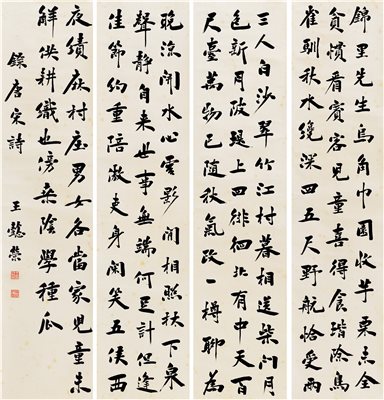 錦里先生烏角巾園收芋栗未全
貧慣看賓客兒童喜得食階除鳥
雀馴秋水纔深四五尺野航恰受兩
三人白沙翠竹江村暮相送柴門月
色新月陂堤上四徘徊北有中天百
尺臺萬物已隨秋氣改一樽聊為
晚涼開水心雲影閒相照林下泉
聲靜自來世事無端何足計但逢
佳節約重陪身閒笑五侯西
夜績麻村莊男女各當家兒童未
解供耕織也傍桑陰學種瓜
錄唐宋詩
王懿榮